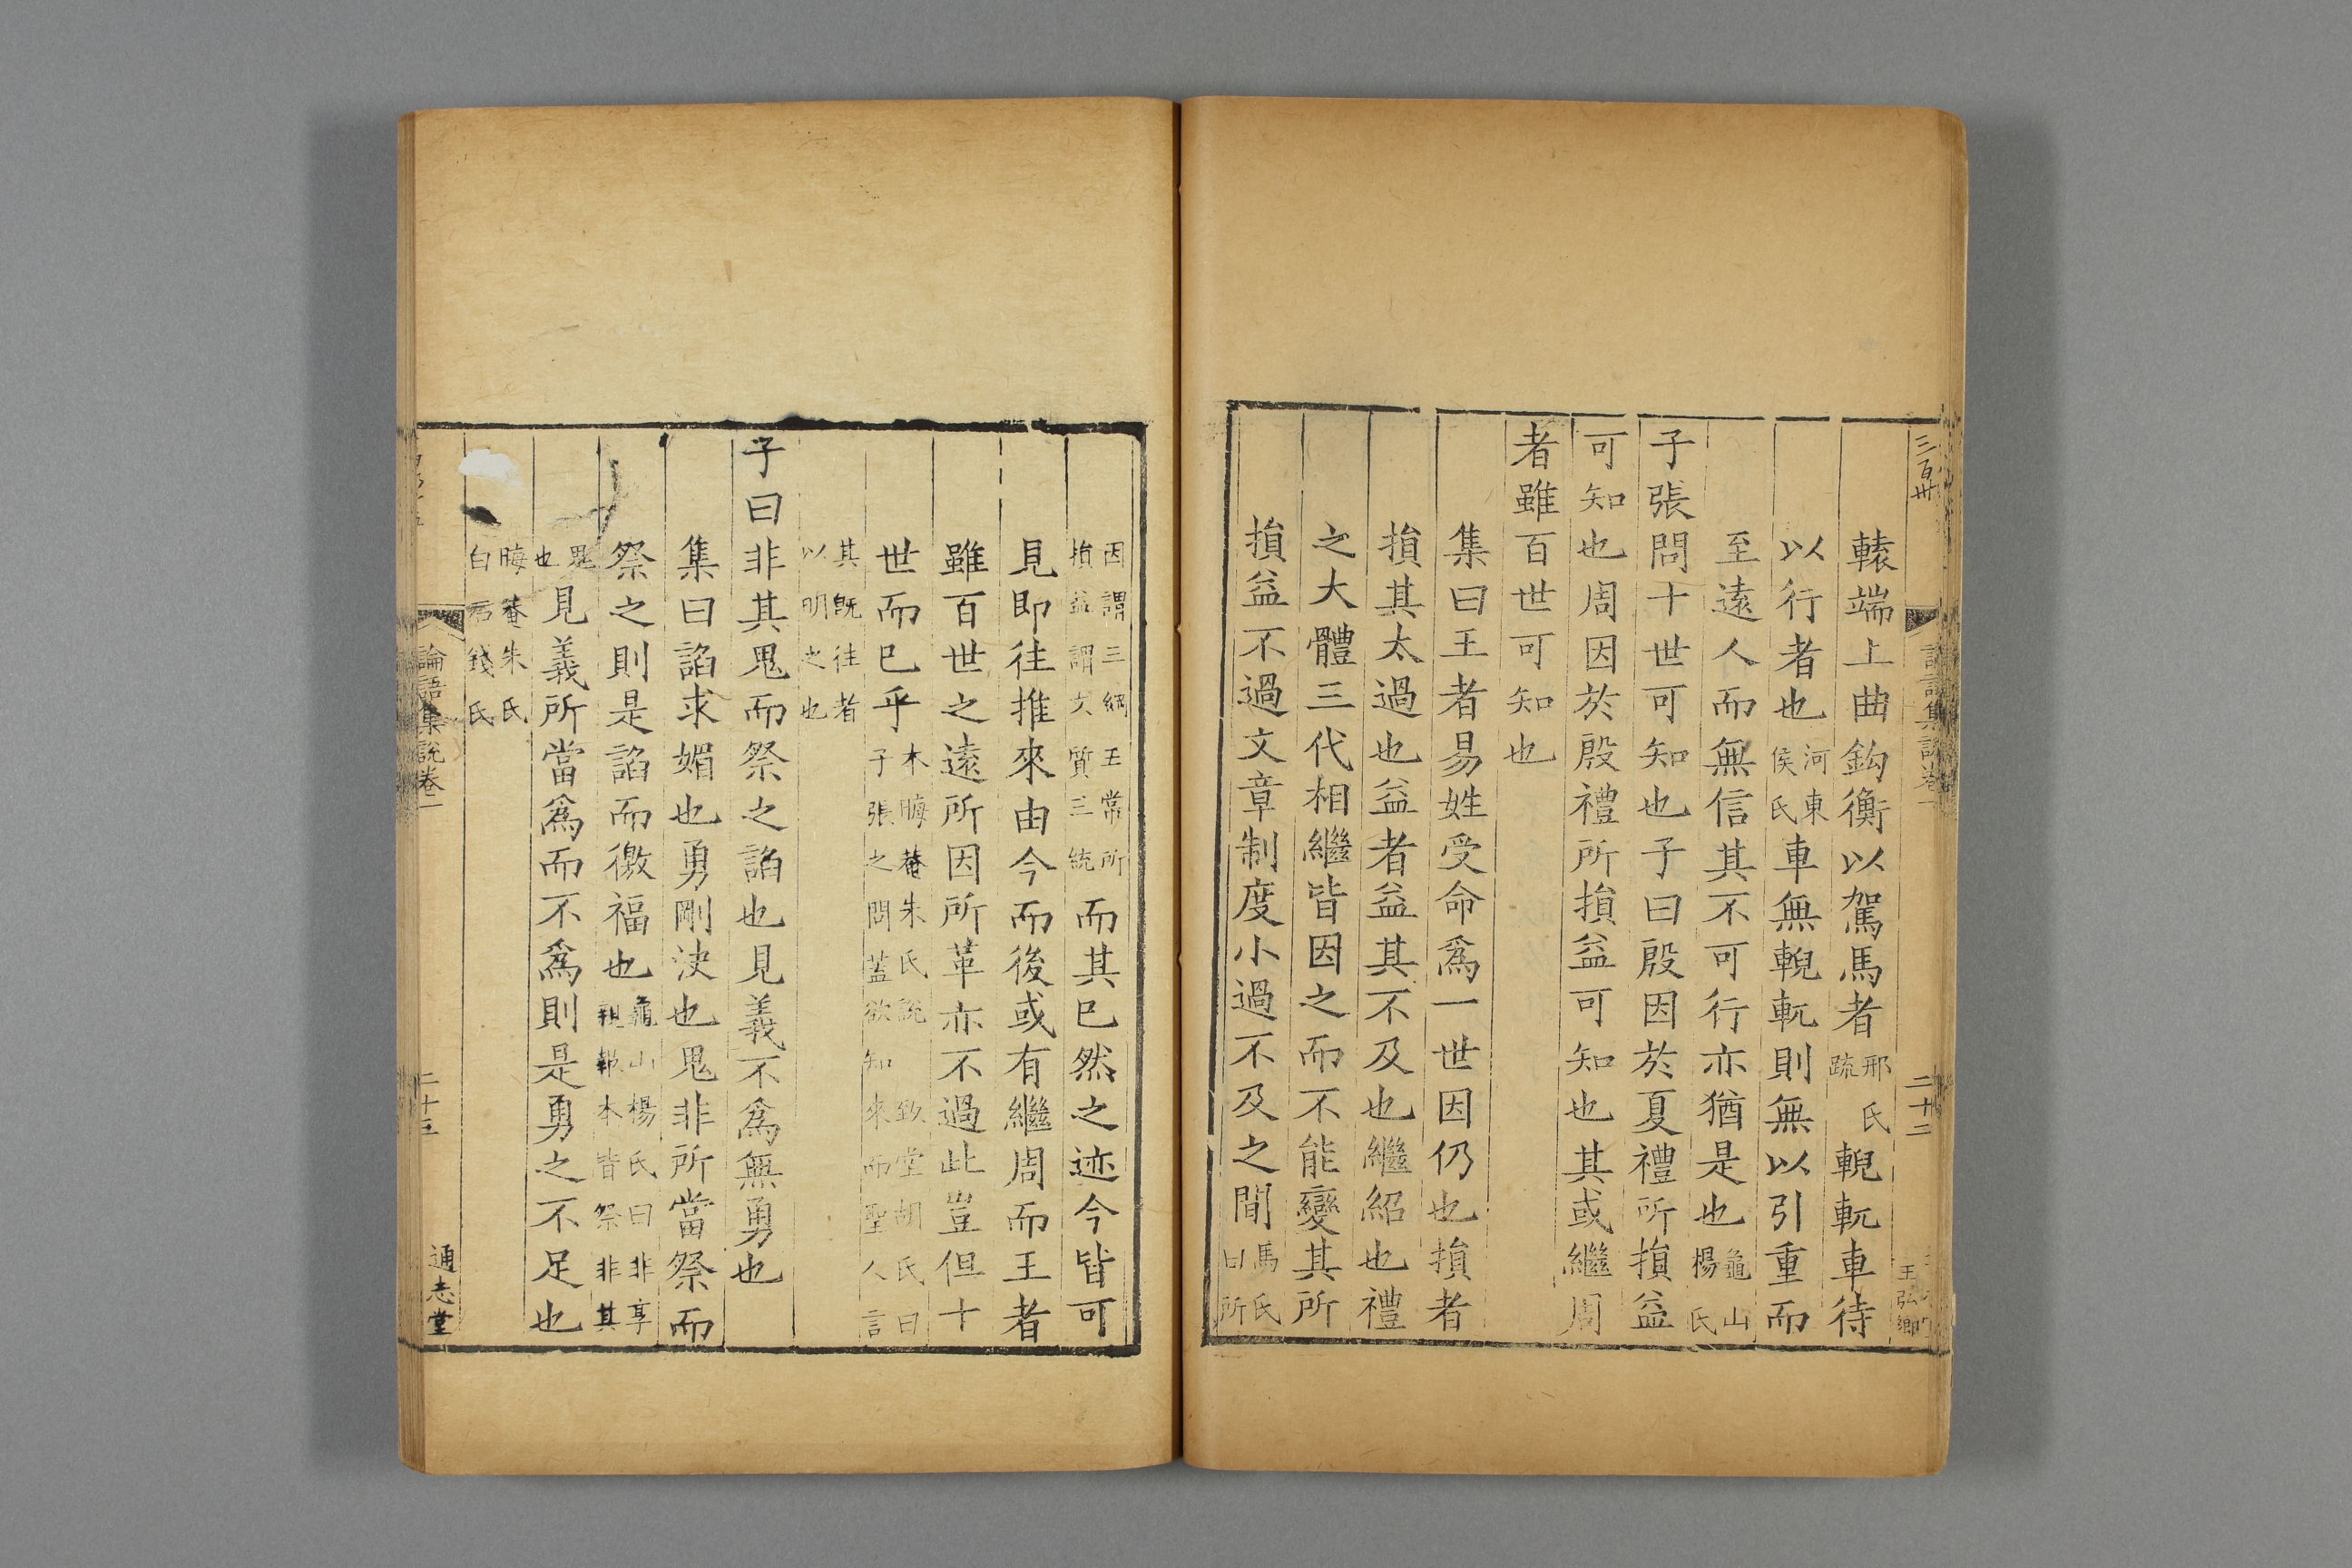 三百卅
論語集說卷一
二十二
王弘卿
轅端上曲鈎衡以駕馬者邢氏疏輗軏車待
以行者也河東侯氏車無輗軏則無以引重而
至遠人而無信其不可行亦猶是也龜山楊氏
子張問十世可知也子曰殷因於夏禮所損益
可知也周因於殷禮所損益可知也其或繼周
者雖百世可知也
集曰王者易姓受命爲一世因仍也損者
損其太過也益者益其不及也繼紹也禮
之大體三代相繼皆因之而不能變其所
損益不過文章制度小過不及之間馬氏曰所
因謂三綱五常所損益謂文質三統而其已然之迹今皆可
見即往推來由今而後或有繼周而王者
雖百世之遠所因所革亦不過此豈但十
世而已乎本晦菴朱氏說 致堂胡氏曰子張之問蓋欲知來而聖人言
其旣往者以明之也
子曰非其鬼而祭之諂也見義不爲無勇也
集曰諂求媚也勇剛決也鬼非所當祭而
祭之則是諂而徼福也龜山楊氏曰非享親報本皆祭非其
鬼也見義所當爲而不爲則是勇之不足也
晦菴朱氏白石錢氏
論語集說卷一
二十三
通志堂